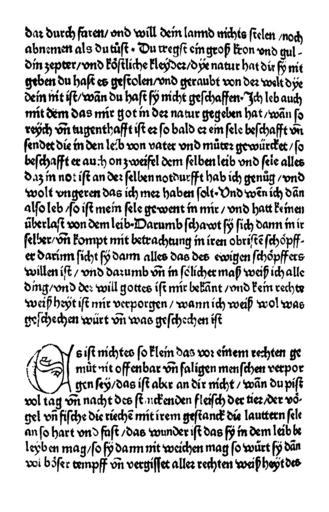 daz durch faren/ und will dein lannd nichts stelen /noch
abnemen als du tůst · Du tregst ein groß kron und gul-
din zepter/vnd köstliche kleyder/dye natur hat dir sy nit
geben du hast es gestolen/vnd geraubt von der welt dye
dein nit ist/wañ du hast sy nicht geschaffen·Ich leb auch
mit dem das mir got in der natur gegeben hat/wañ so
reych vñ tugenthafft ist er so bald er ein sele beschafft vñ
sendet die in den leib von vater und můter gewürcket/ so
beschafft er auch on zweifel dem selben leib und sele alles
daz in not ist an der selben notdurfft hab ich genůg /und
wolt ungeren das ich mer haben solt·Und weñ ich dañ
also leb /so ist mein sele gewent in mir / und hatt keinen
überlast von dem leib·Darumb schawt sy sich dann in ir
selber/vñ kompt mit betrachtung in iren obristẽ schöpff-
er darinn sicht sy dann alles das des ewigen schöpffers
willen ist / vnd darumb vñ in sölichet maß weiß ich alle
ding/und der will gottes ist mir bekant/und kein rechte
weiß heyt ist mir verporgen /wann ich weiß wol was
geschechen würt vñ was geschechen ist
Es ist nichtes so klein das vor einem rechten ge
müt nit offenbar vñ saligen menschen verpor
gen sey/das ist aber an dir nicht / wañ du pist
vol tag vñ nacht des stinckenden fleisch der tier/der vö-
gel vñ fische die riechẽ mit irem gestanck die lauttern sele
an so hart und fast /das wunder ist das sy in dem leib be
leyben mag/so sy dann nit weichen mag so würt sy dañ
vol böser tempff vñ vergisset aller rechten weiß heyt des